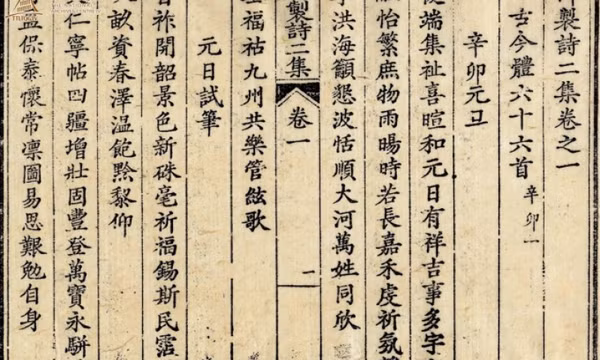 製詩二集卷之一
古今體六十六首 辛卯一
辛卯元旦
端集祉喜暄和元日有祥吉事多宇
怡繁庶物雨暘時若長嘉禾虔祈氛
洪海籟懇波恬順大河萬姓同欣
製詩二集 卷一 一
福祜九州共樂管絃歌
元日試筆
祚開韶景色新硃毫祈福錫斯民霑
畝資春澤溫飽黔黎仰
仁寧帖四疆增壯固豐登萬寶永駢
盈保泰懷常凜圖易思艱勉自身